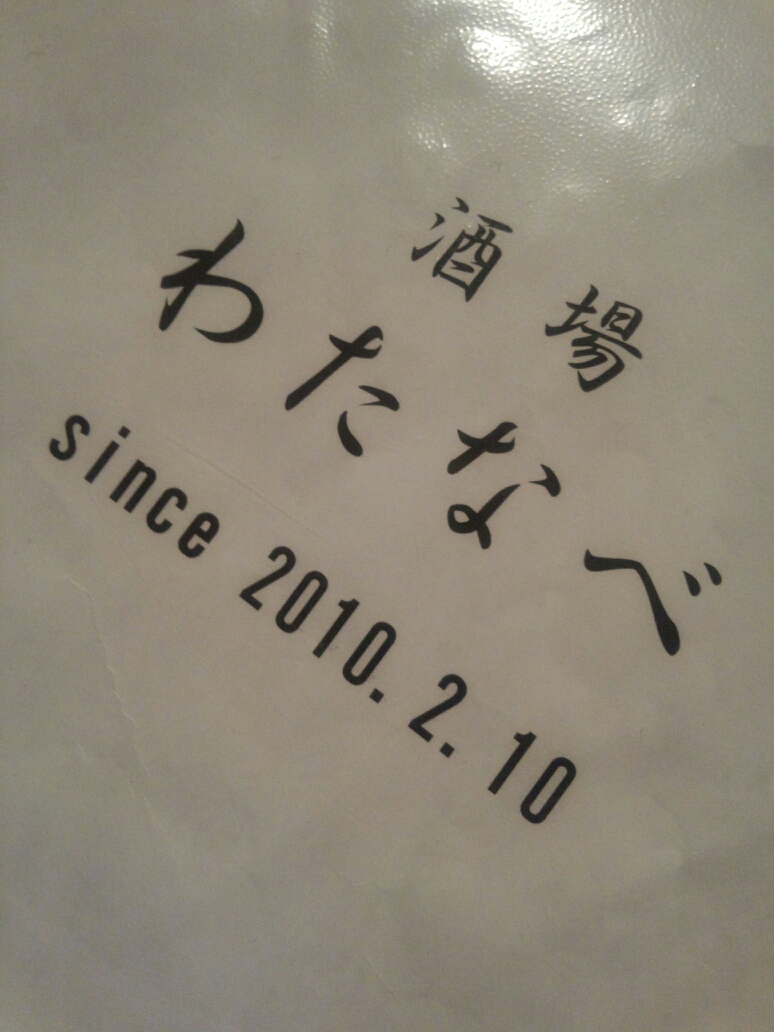 酒場
わたなべ
since 2010.2.10